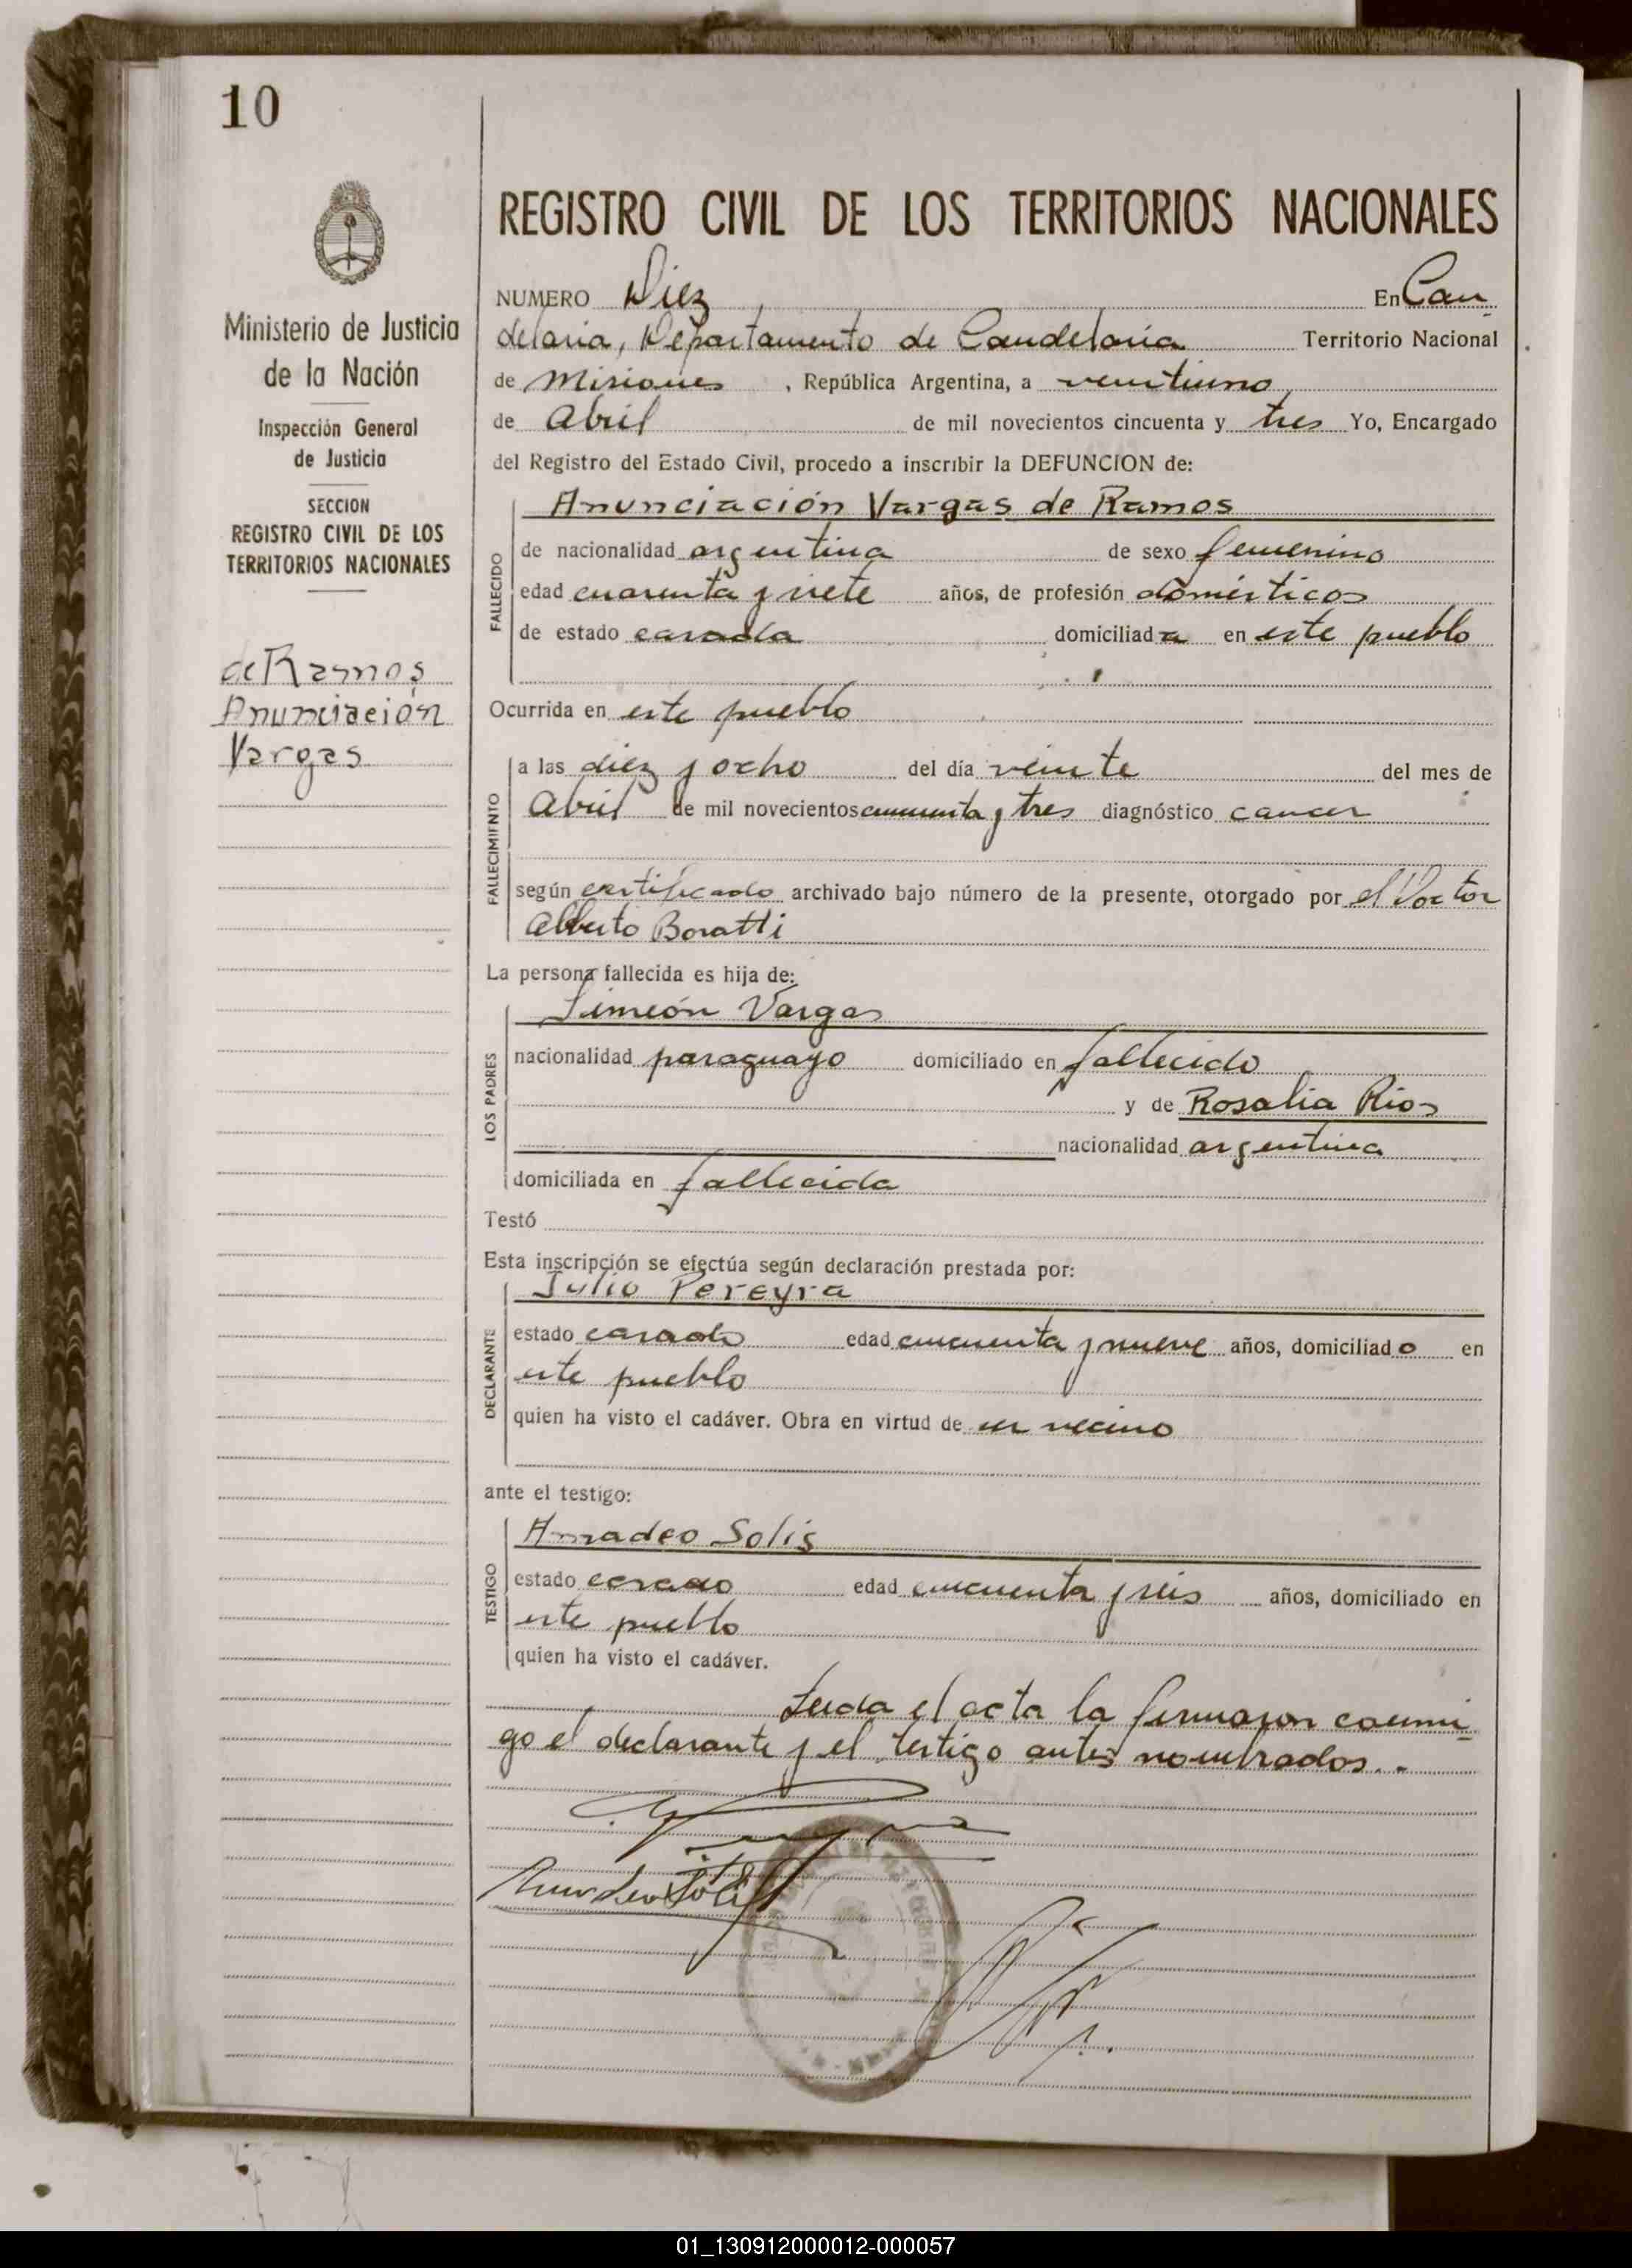 10
Ministerio de Justicia
de la Nación
Inspección General
de Justicia
SECCION
REGISTRO CIVIL DE LOS
TERRITORIOS NACIONALES
de Ramos
Anunciación
Vargas
REGISTRO CIVIL DE LOS TERRITORIOS NACIONALES
NUMERO Diez En Can
delaria, Departamento de Candelaria Territorio Nacional
de Misiones , República Argentina, a veintiuno
de Abril de mil novecientos cincuenta y tres Yo, Encargado
del Registro del Estado Civil, procedo a inscribir la DEFUNCION de:
FALLECIDO
Anunciación Vargas de Ramos
de nacionalidad argentina de sexo femenino
edad cuarenta y siete años, de profesión domésticos
de estado casada domiciliada en este pueblo
Ocurrida en este pueblo
FALLECIMIENTO
a las diez y ocho del día veinte del mes de
Abril de mil novecientos cincuenta y tres diagnóstico cancer
según certificado archivado bajo número de la presente, otorgado por el Doctor
Alberto Boratti
La persona fallecida es hija de:
LOS PADRES
Simeón Vargas
nacionalidad paraguayo domiciliado en fallecido
y de Rosalia Rios
nacionalidad argentina
domiciliada en fallecida
Testó
Esta inscripción se efectúa según declaración prestada por:
DECLARANTE
Julio Pereyra
estado casado edad cincuenta y nueve años, domiciliado en
este pueblo
quien ha visto el cadáver. Obra en virtud de ser vecino
ante el testigo:
TESTIGO
Amadeo Solis
estado casado edad cincuenta y seis años, domiciliado en
este pueblo
quien ha visto el cadáver.
Leida el acta la firmaron conmi
go el declarante y el testigo antes nombrados..
Amadeo Solis
01_130912000012-000057